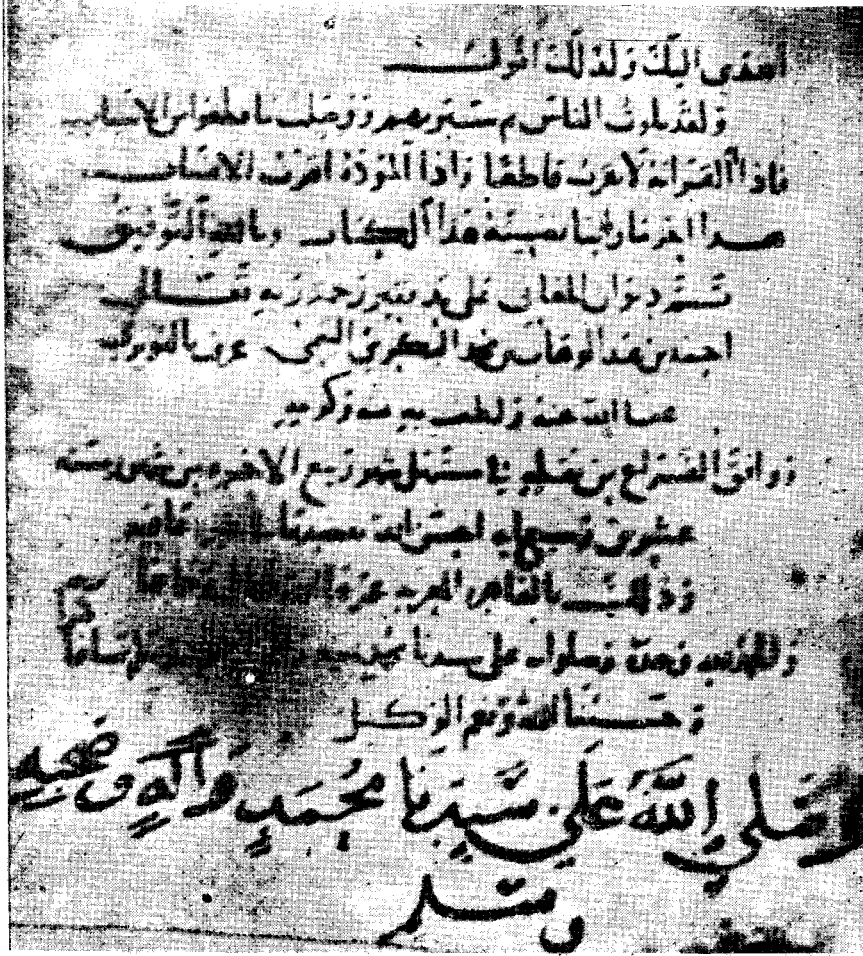 اهدى اليك ولذلك اقول
ولقد بلوت الناس ثم سبرتهم ووصلت ما قطعوا من الاسباب
فاذا القرابة لا تقرب قاطعا واذا المودة اقرب الانساب
هذا اخر ما رتبنا سفينة هذا الكتاب وبالله التوفيق
تم ديوان المعاني على يد فقير رحمة ربه تعالى
احمد بن عبد الوهاب بن محمد البكري التيمي عرف بالنويري
عفا الله عنه ولطف به بمنه وكرمه
ووافق الفراغ من تعليقه في مستهل شهر ربيع الاخر من شهور سنة
عشرين وسبعمايه احسن الله
وذلك بالقاهرة المعزية
والحمد لله وحده وصلواته على سيدنا محمد
كثيرا
وحسبنا الله ونعم الوكيل
وصلى الله على سيدنا محمد وآله وصحبه
وسلم